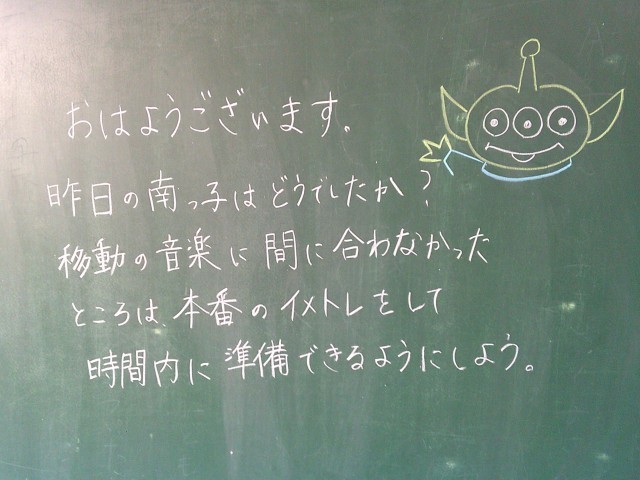 おはようございます。
昨日の南っ子はどうでしたか?
移動の音楽に間に合わなかった
ところは、本番のイメトレをして
時間内に準備できるようにしよう。